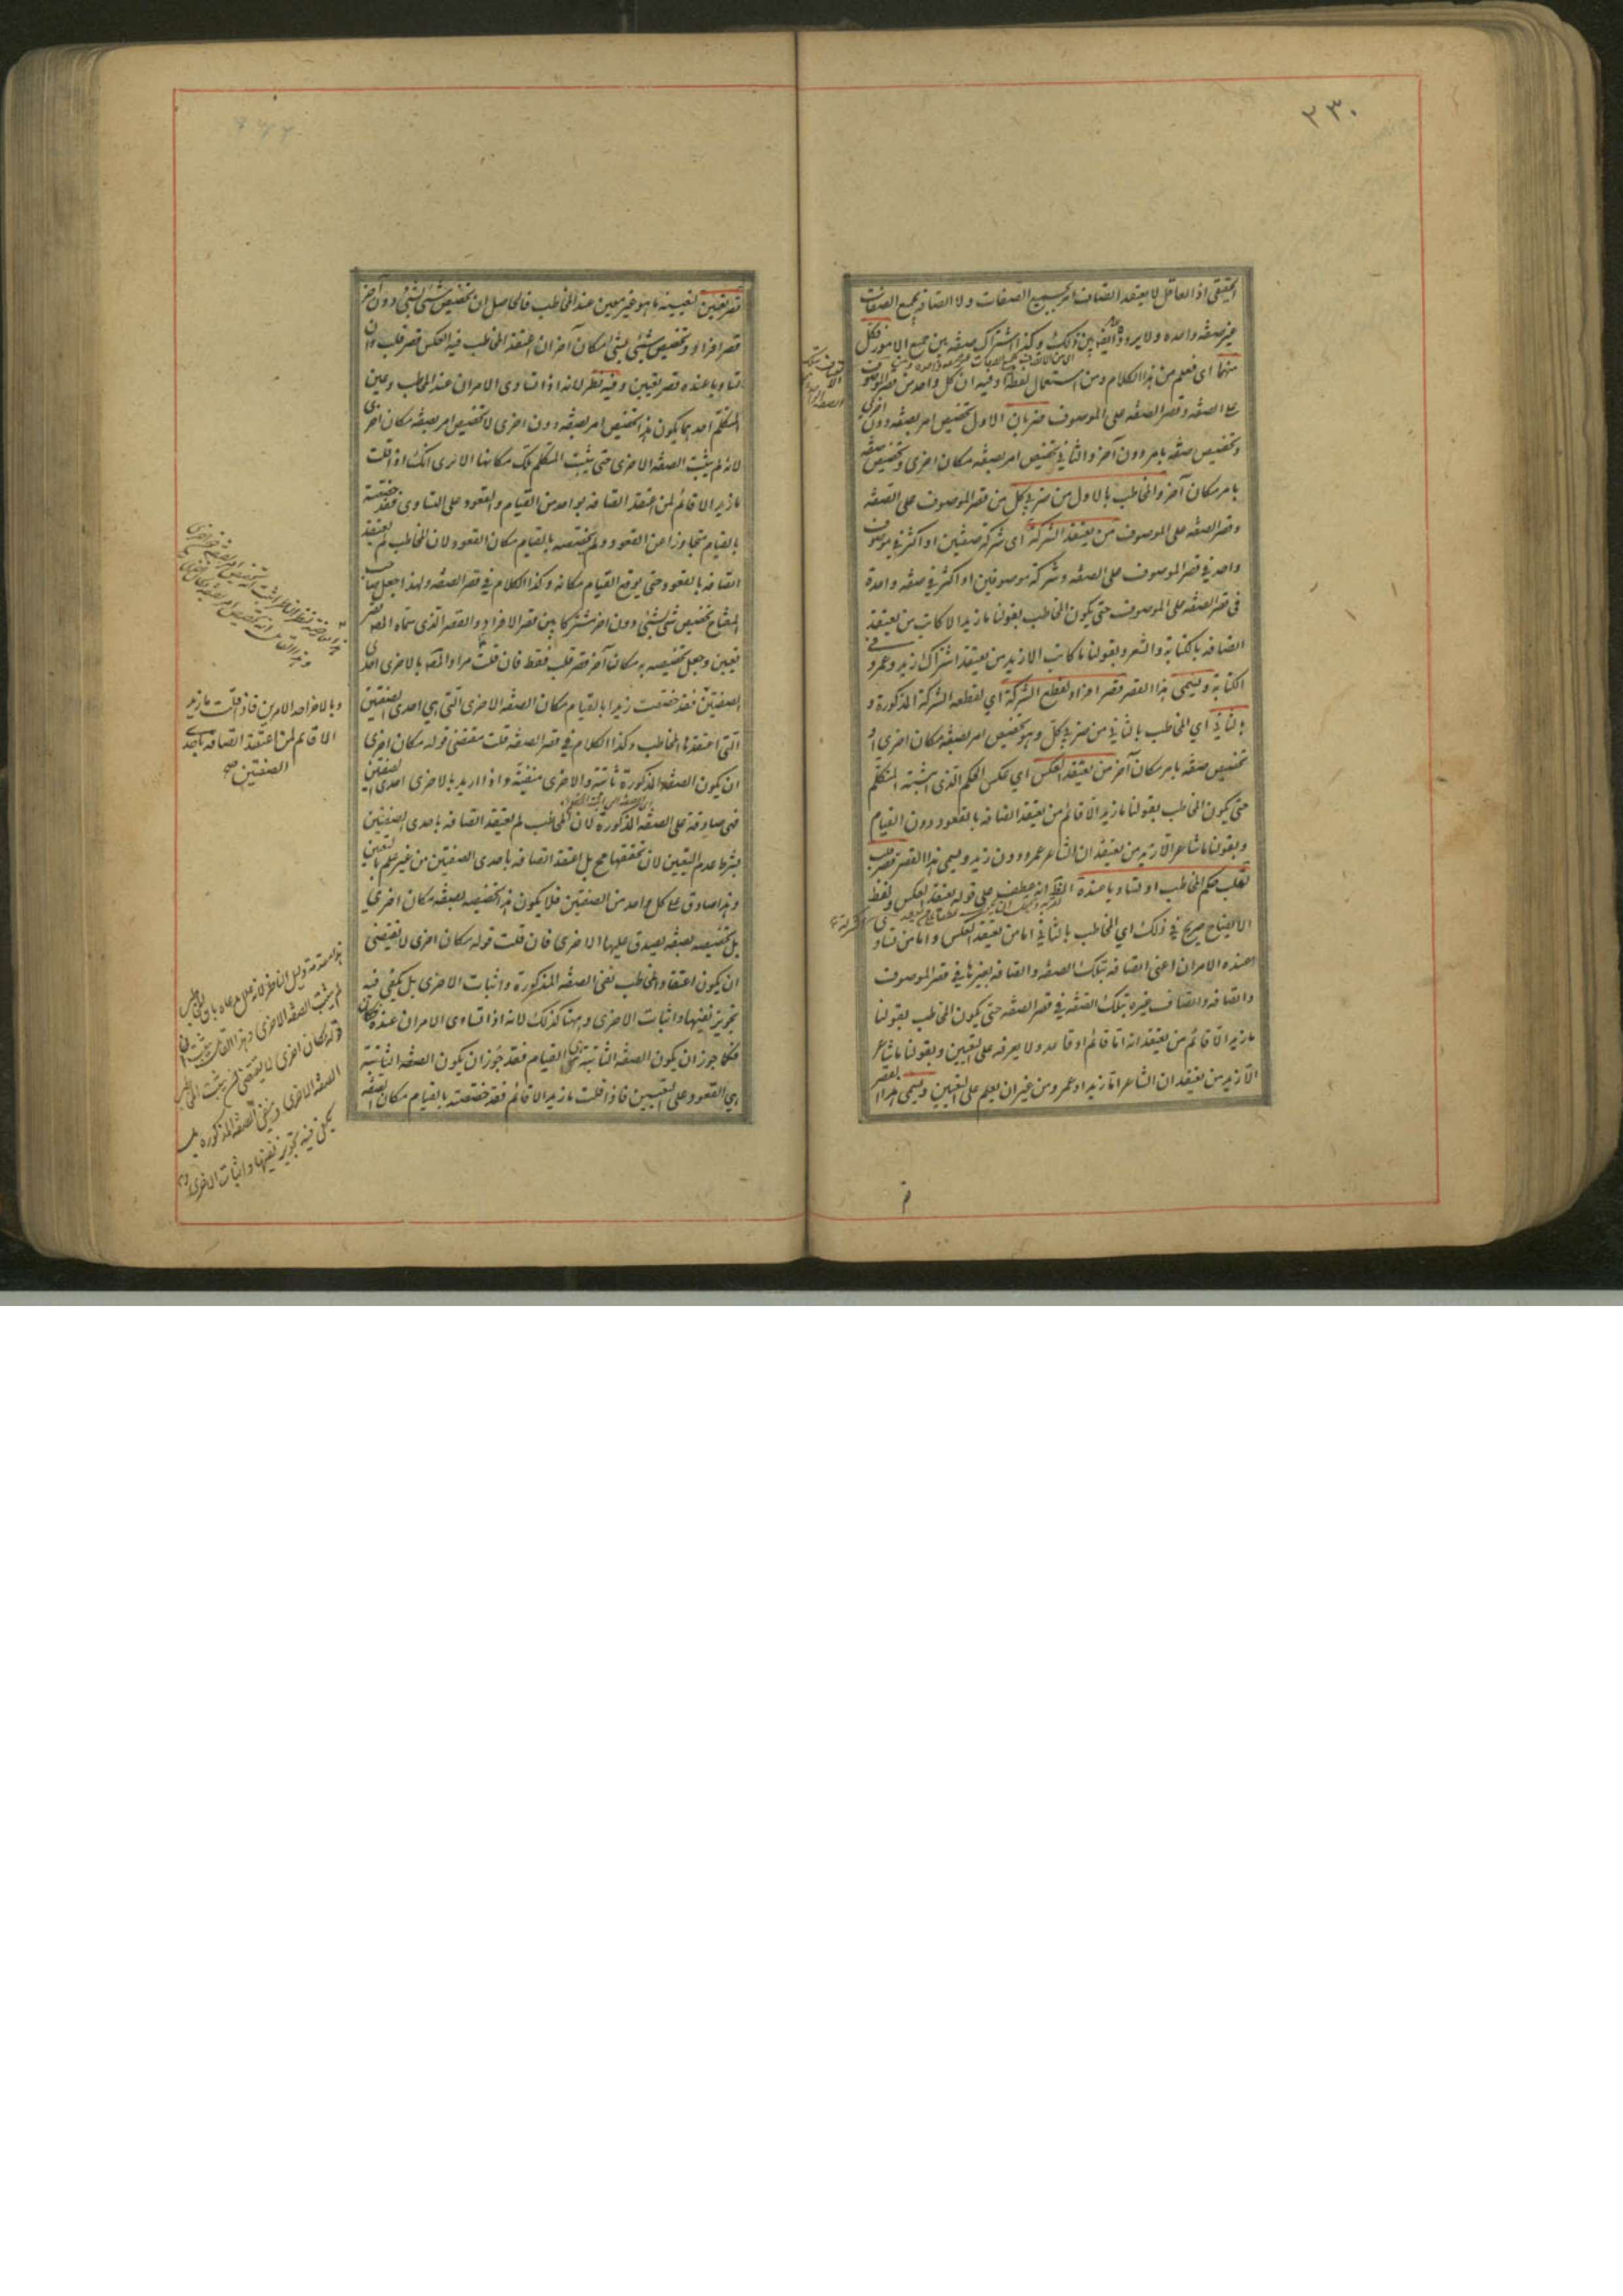 ٢٣٠
الحقيقى اذ العاقل لا يعتقد اتصاف امر بجميع الصفات ولا اتصافه بجميع الصفات
غير صفة واحدة ولا يردده ايضا بين ذلك وكذا اشتراك صفة بين جميع الامور فكل
منهما اى فعلم من هذا الكلام ومن استعمال لفظة او فيه ان كل واحد من قصر الموصوف
على الصفة وقصر الصفة على الموصوف ضربان الاول تخصيص امر بصفة دون اخرى
وتخصيص صفة بامر دون آخر والثانى تخصيص امر بصفة مكان اخرى وتخصيص صفة
بامر مكان آخر والمخاطب بالاول من ضربى كل من قصر الموصوف على الصفة
وقصر الصفة على الموصوف من يعتقد الشركة اى شركة صفتين او اكثر فى موصوف
واحد فى قصر الموصوف على الصفة وشركة موصوفين او اكثر فى صفة واحدة
فى قصر الصفة على الموصوف حتى يكون المخاطب بقولنا ما زيد الا كاتب من يعتقد
اتصافه بالكتابة والشعر وبقولنا ما كاتب الا زيد من يعتقد اشتراك زيد وعمرو فى
الكتابة ويسمى هذا القصر قصر افراد لقطع الشركة اى لقطعه الشركة المذكورة و
بالثانى اى المخاطب بالثانى من ضربى كل وهو تخصيص امر بصفة مكان اخرى او
تخصيص صفة بامر مكان آخر من يعتقد العكس اى عكس الحكم الذى اثبته المتكلم
حتى يكون المخاطب بقولنا ما زيد الا قائم من يعتقد اتصافه بالقعود دون القيام
وبقولنا ما شاعر الا زيد من يعتقد ان الشاعر عمرو دون زيد ويسمى هذا القصر قصر قلب
لقلب حكم المخاطب او تساويا عنده الظ انه عطف على قوله يعتقد العكس ولفظ
الايضاح صريح فى ذلك اى المخاطب بالثانى اما من يعتقد العكس واما من تساو
ا عنده الامران اعنى اتصافه بتلك الصفة واتصافه بغيرها فى قصر الموصوف
واتصافه واتصاف غيره بتلك الصفة فى قصر الصفة حتى يكون المخاطب بقولنا
ما زيد الا قائم من يعتقد انه اما قائم او قاعد ولا يعرفه على التعيين وبقولنا ما شاعر
الا زيد من يعتقد ان الشاعر اما زيد او عمرو من غير ان يعلم على التعيين ويسمى هذا القصر
قصر تعيين لتعيينه ما هو غير معين عند المخاطب فالحاصل ان تخصيص شئ بشئ دون آخر
قصر افراد وتخصيص شئ بشئ مكان آخر ان اعتقد المخاطب فيه العكس قصر قلب وان
تساويا عنده قصر تعيين وفيه نظر لانه اذا تساوى الامران عند المخاطب وعين
المتكلم احدهما يكون هذا تخصيص امر بصفة دون اخرى لا تخصيص امر بصفة مكان اخرى
لانه لم يثبت الصفة الاخرى حتى يثبت المتكلم تلك مكانها الا ترى انك اذا قلت
ما زيد الا قائم لمن اعتقد اتصافه بواحد من القيام والقعود على التساوى فقد خصصته
بالقيام متجاوزا عن القعود ولم تخصصه بالقيام مكان القعود لان المخاطب لم يعتقد
اتصافه بالقعود حتى يوقع القيام مكانه وكذا الكلام فى قصر الصفة ولهذا جعل صاحب
المفتاح تخصيص شئ بشئ دون اخر مشتركا بين قصر الافراد والقصر الذى سماه المص قصر
تعيين وجعل تخصيصه به مكان آخر قصر قلب فقط فان قلت مراد المص بالاخرى احدى
الصفتين فقد خصصت زيدا بالقيام مكان الصفة الاخرى التى هى احدى الصفتين
التى اعتقدها المخاطب وكذا الكلام فى قصر الصفة قلت مقتضى قوله مكان اخرى
ان يكون الصفة المذكورة ثابتة والاخرى منفية واذا اريد بالاخرى احدى الصفتين
فهى صادقة على الصفة المذكورة لان المخاطب لم يعتقد اتصافه باحدى الصفتين
بشرط عدم التعيين لان تحققها مح بل اعتقد اتصافه باحدى الصفتين من غير علم بالتعيين
وهذا صادق على كل واحد من الصفتين فلا يكون هذا تخصيصه بصفة مكان اخرى
بل تخصيصه بصفة يصدق عليها الاخرى فان قلت قوله مكان اخرى لا يقتضى
ان يكون اعتقاد المخاطب نفى الصفة المذكورة واثبات الاخرى بل يكفى فيه
تجويز نفيها واثبات الاخرى وههنا كذلك لانه اذا تساوى الامران عنده فكان
فكما جوز ان يكون الصفة الثابتة هى القيام فقد جوز ان يكون الصفة الثابتة
هى القعود على التعيين فاذا قلت ما زيد الا قائم فقد خصصته بالقيام مكان الصفة
وبالاخر احد الامرين فاذا قلت ما زيد
الا قائم لمن اعتقد اتصافه باحدى
الصفتين صح
لم يثبت الصفة الاخرى وهذا
قوله مكان اخرى لا يقتضى
الصفة الاخرى ونفى الصفة المذكورة بل
يكفى فيه تجويز نفيها واثبات الاخرى